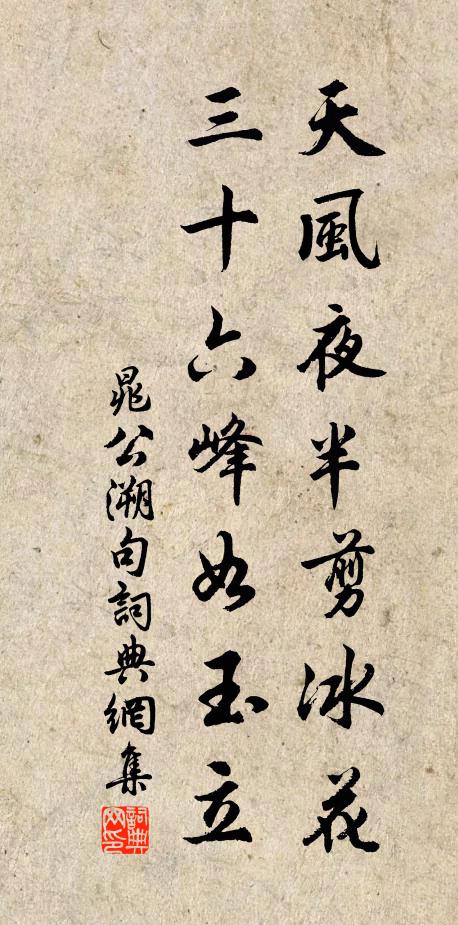 天風夜半剪冰花
三十六峰如玉立
晁公溯句詞典網集
詞典網印